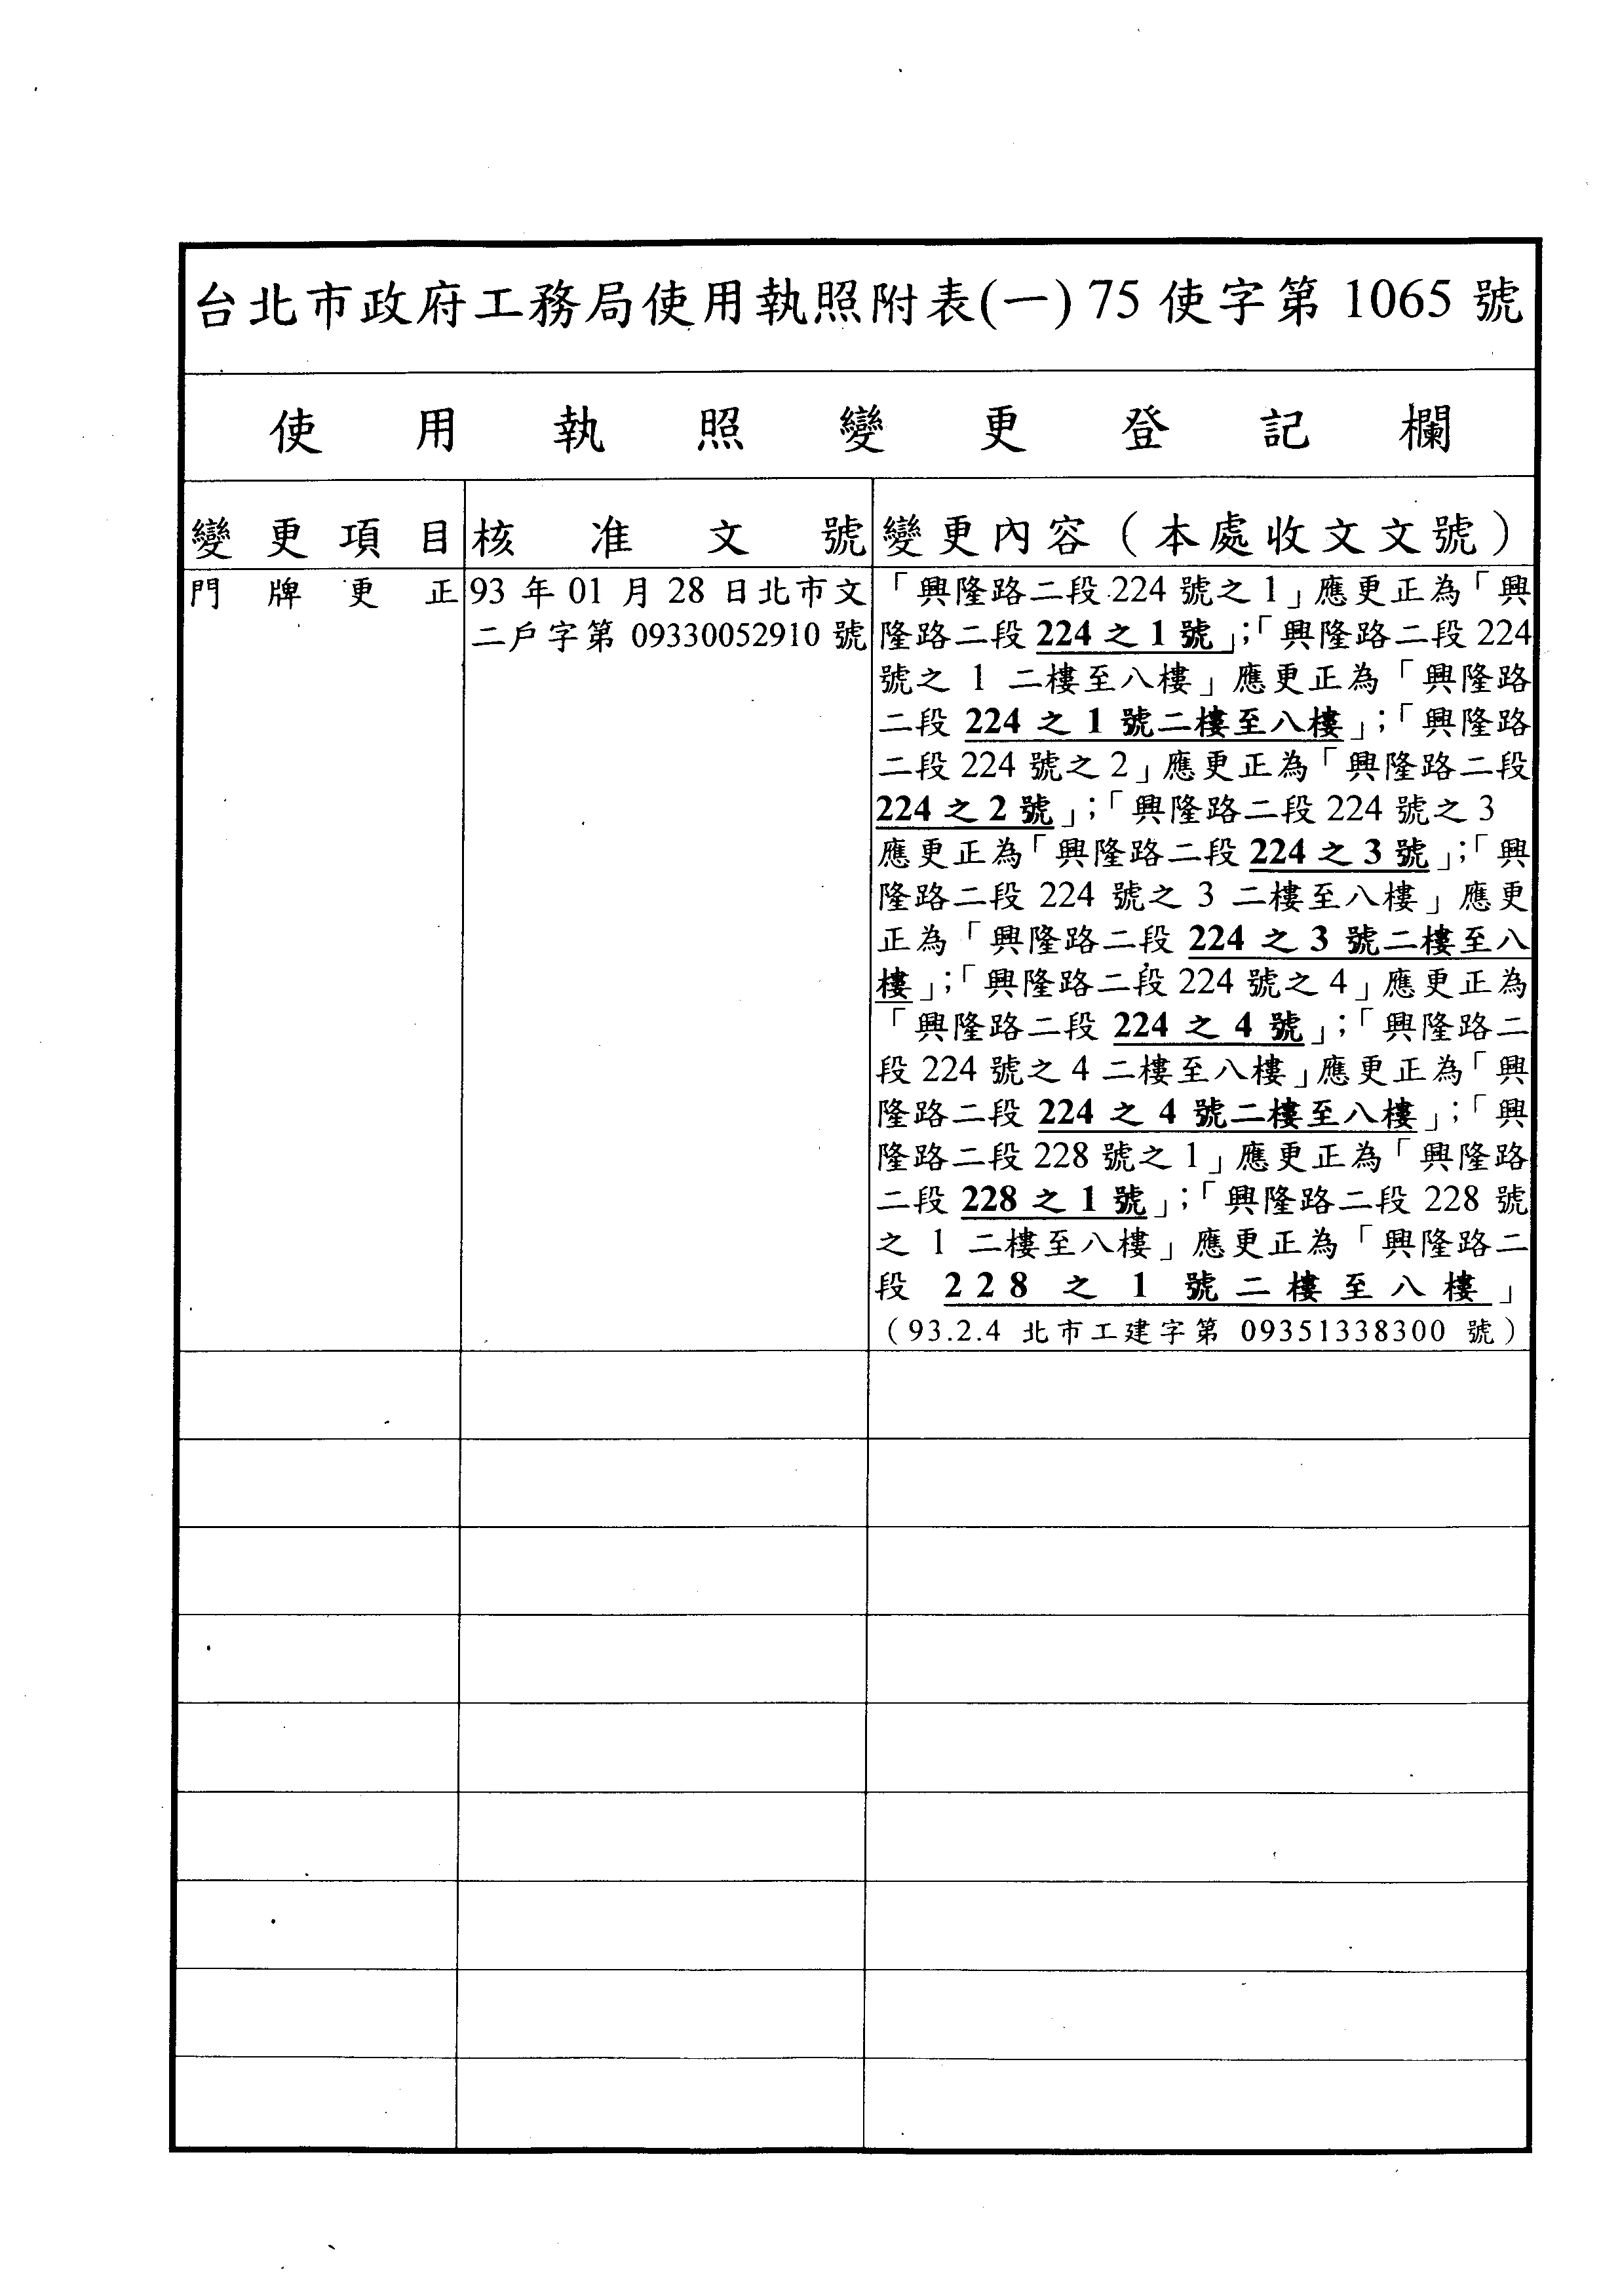 台北市政府工務局使用執照附表(一) 75 使字第 1065 號
使用執照變更登記欄
變更項目 核准文號 變更內容（本處收文文號）
門牌更正
93 年 01 月 28 日北市文
二戶字第 09330052910 號
「興隆路二段 224 號之 1」應更正為「興
隆路二段 224 之 1 號」;「興隆路二段 224
號之 1 二樓至八樓」應更正為「興隆路
二段 224 之 1 號二樓至八樓」;「興隆路
二段 224 號之 2」應更正為「興隆路二段
224 之 2 號」;「興隆路二段 224 號之 3
應更正為「興隆路二段 224 之 3 號」;「興
隆路二段 224 號之 3 二樓至八樓」應更
正為「興隆路二段 224 之 3 號二樓至八
樓」;「興隆路二段 224 號之 4」應更正為
「興隆路二段 224 之 4 號」;「興隆路二
段 224 號之 4 二樓至八樓」應更正為「興
隆路二段 224 之 4 號二樓至八樓」;「興
隆路二段 228 號之 1」應更正為「興隆路
二段 228 之 1 號」;「興隆路二段 228 號
之 1 二樓至八樓」應更正為「興隆路二
段 228 之 1 號二樓至八樓」
（93.2.4 北市工建字第 09351338300 號）